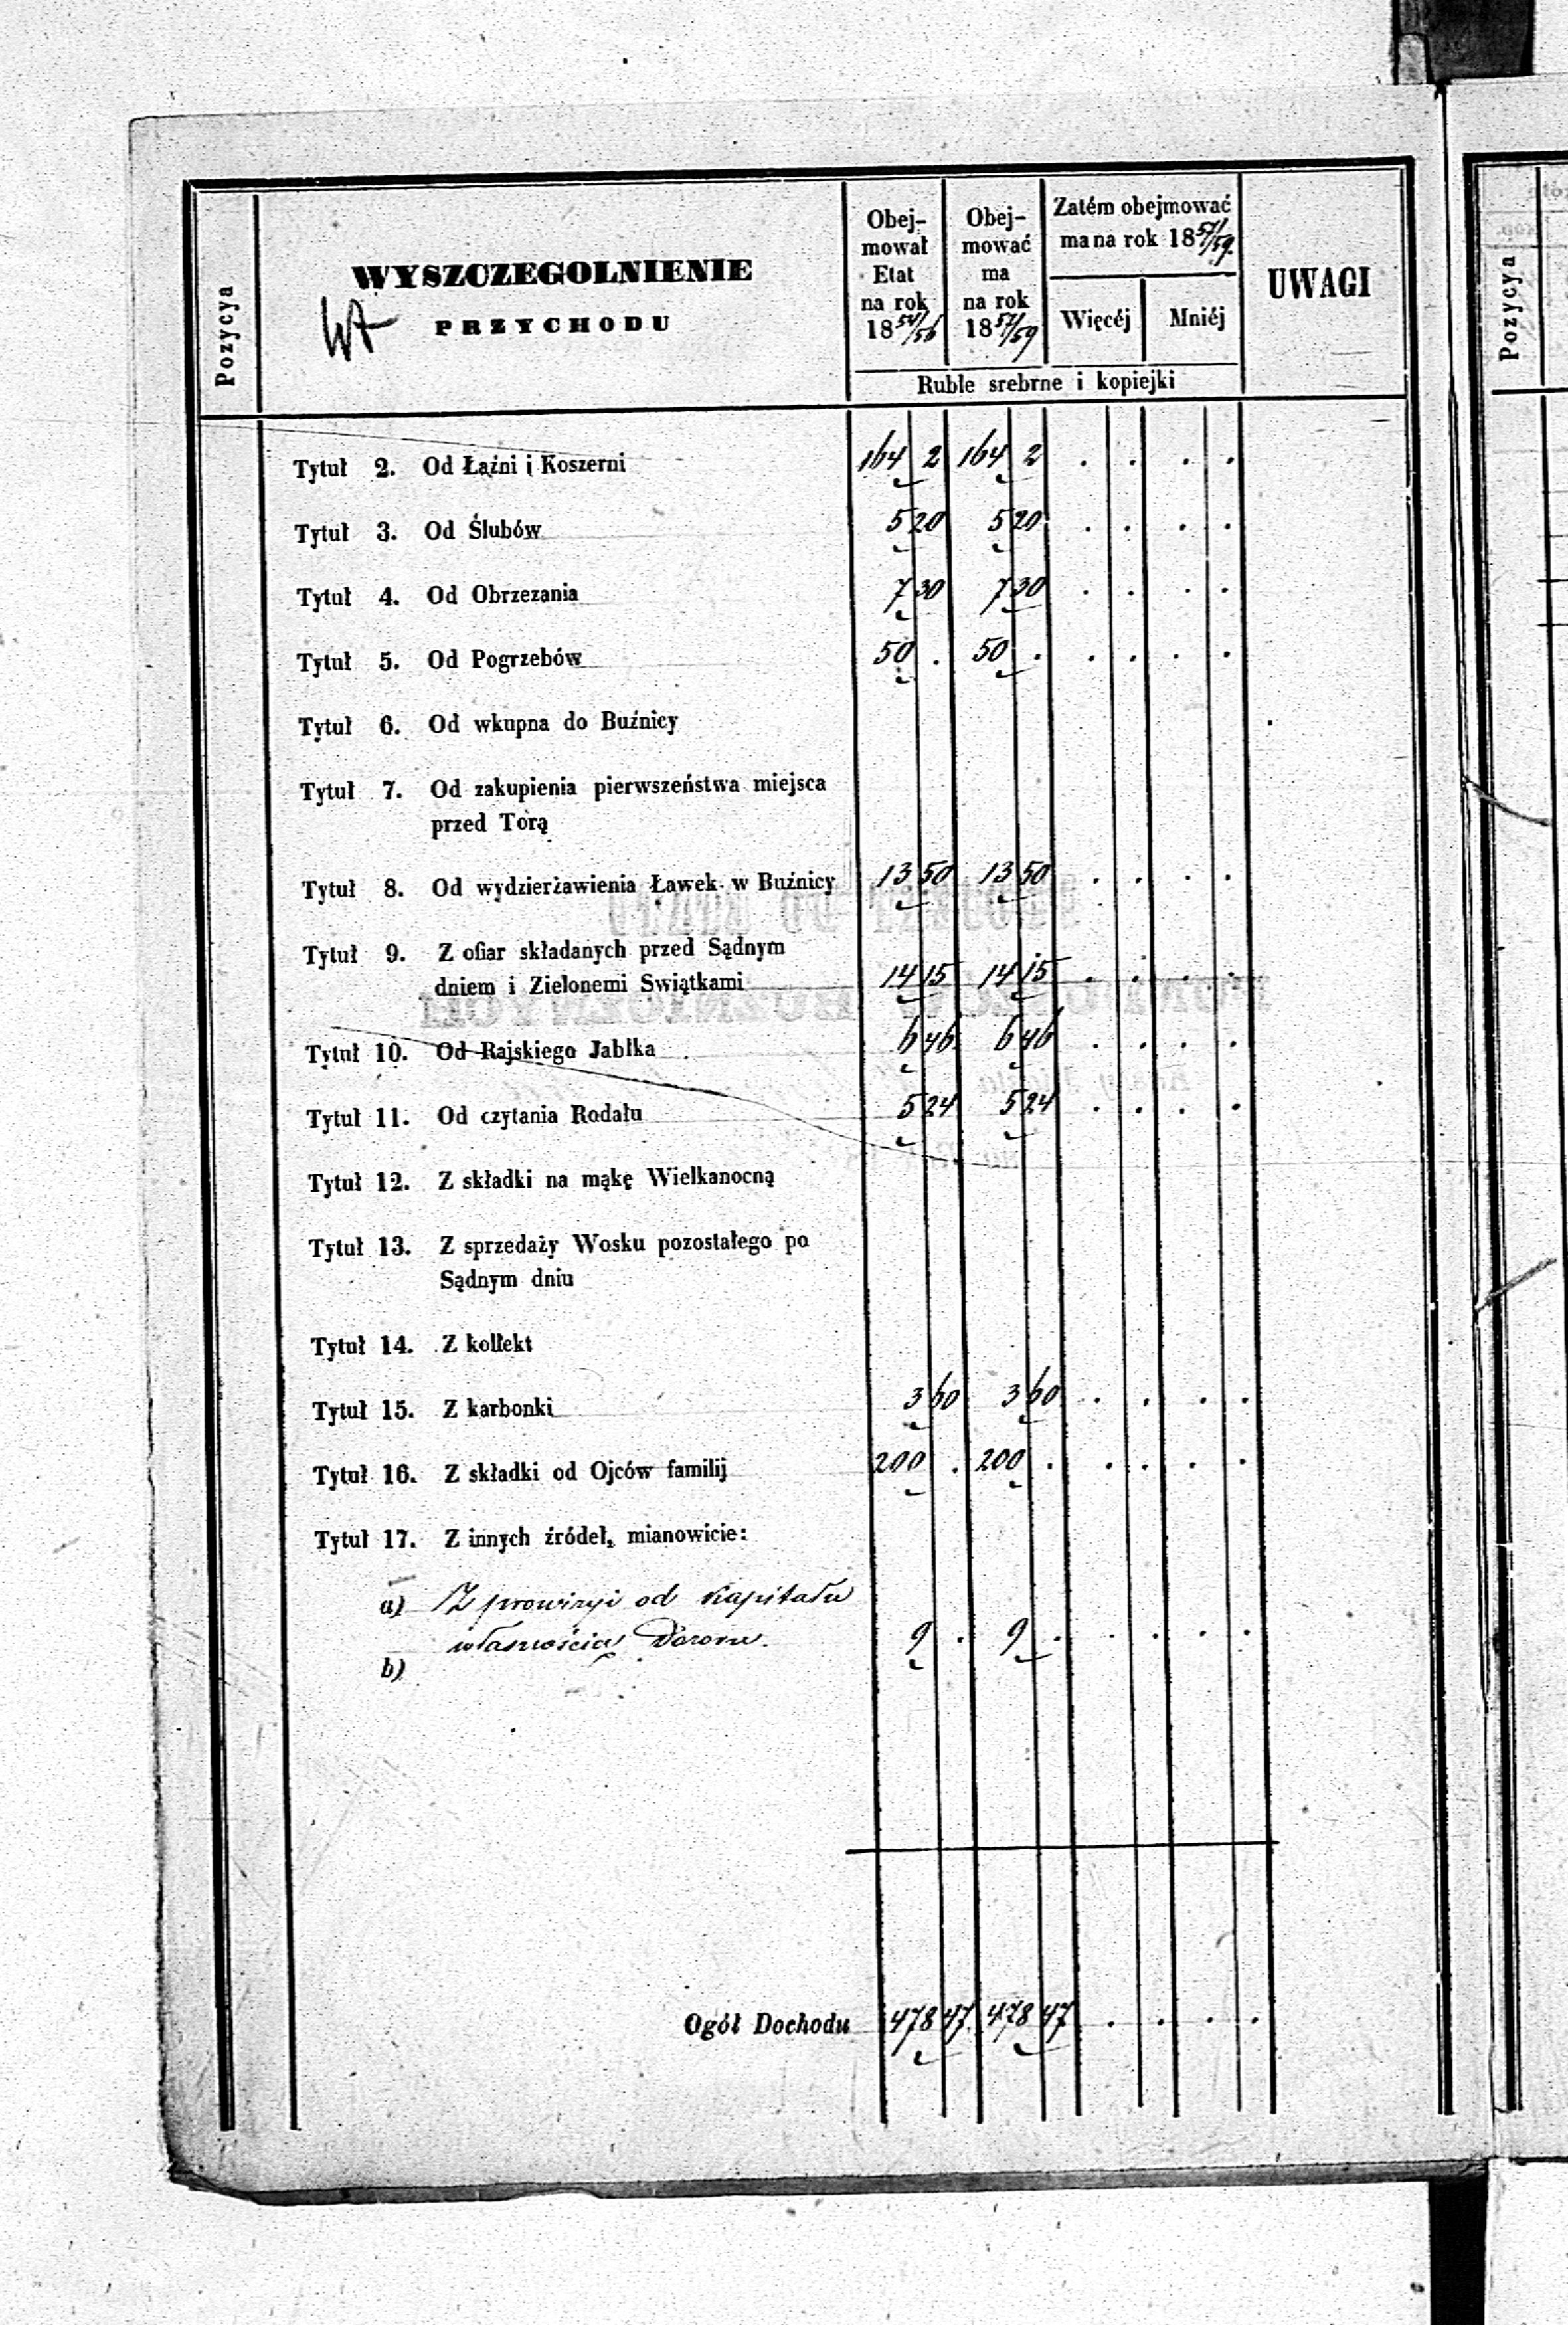 Pozycya
WYSZCZEGOLNIENIE
PRZYCHODU
Obej-
mował
Etat
na rok
18 54/56
Obej-
mować
ma
na rok
18 57/59
Zatém obejmować
ma na rok 18 57/59.
Więcéj Mniéj
UWAGI
Ruble srebrne i kopiejki
Tytuł 2. Od Łaźni i Koszerni 164 2 164 2 . . . .
Tytuł 3. Od Ślubów 5 20 5 20 . . . .
Tytuł 4. Od Obrzezania 7 30 7 30 . . . .
Tytuł 5. Od Pogrzebów 50 . 50 . . . . .
Tytuł 6. Od wkupna do Buźnicy
Tytuł 7. Od zakupienia pierwszeństwa miejsca
przed Torą
Tytuł 8. Od wydzierżawienia Ławek w Buźnicy 13 50 13 50 . . . .
Tytuł 9. Z ofiar składanych przed Sądnym
dniem i Zielonemi Swiątkami 14 15 14 15 . . . .
Tytuł 10. Od Rajskiego Jabłka 6 46 6 46 . . . .
Tytuł 11. Od czytania Rodału 5 24 5 24 . . . .
Tytuł 12. Z składki na mąkę Wielkanocną
Tytuł 13. Z sprzedaży Wosku pozostałego po
Sądnym dniu
Tytuł 14. Z kollekt
Tytuł 15. Z karbonki 3 60 3 60 . . . .
Tytuł 16. Z składki od Ojców familij 200 . 200 . . . . .
Tytuł 17. Z innych źródeł, mianowicie:
a) Z prowizyi od Kapitału
własnością Dozoru. 9 . 9 . . . . .
b)
Ogół Dochodu 478 47 478 47 . . . .
Pozycya